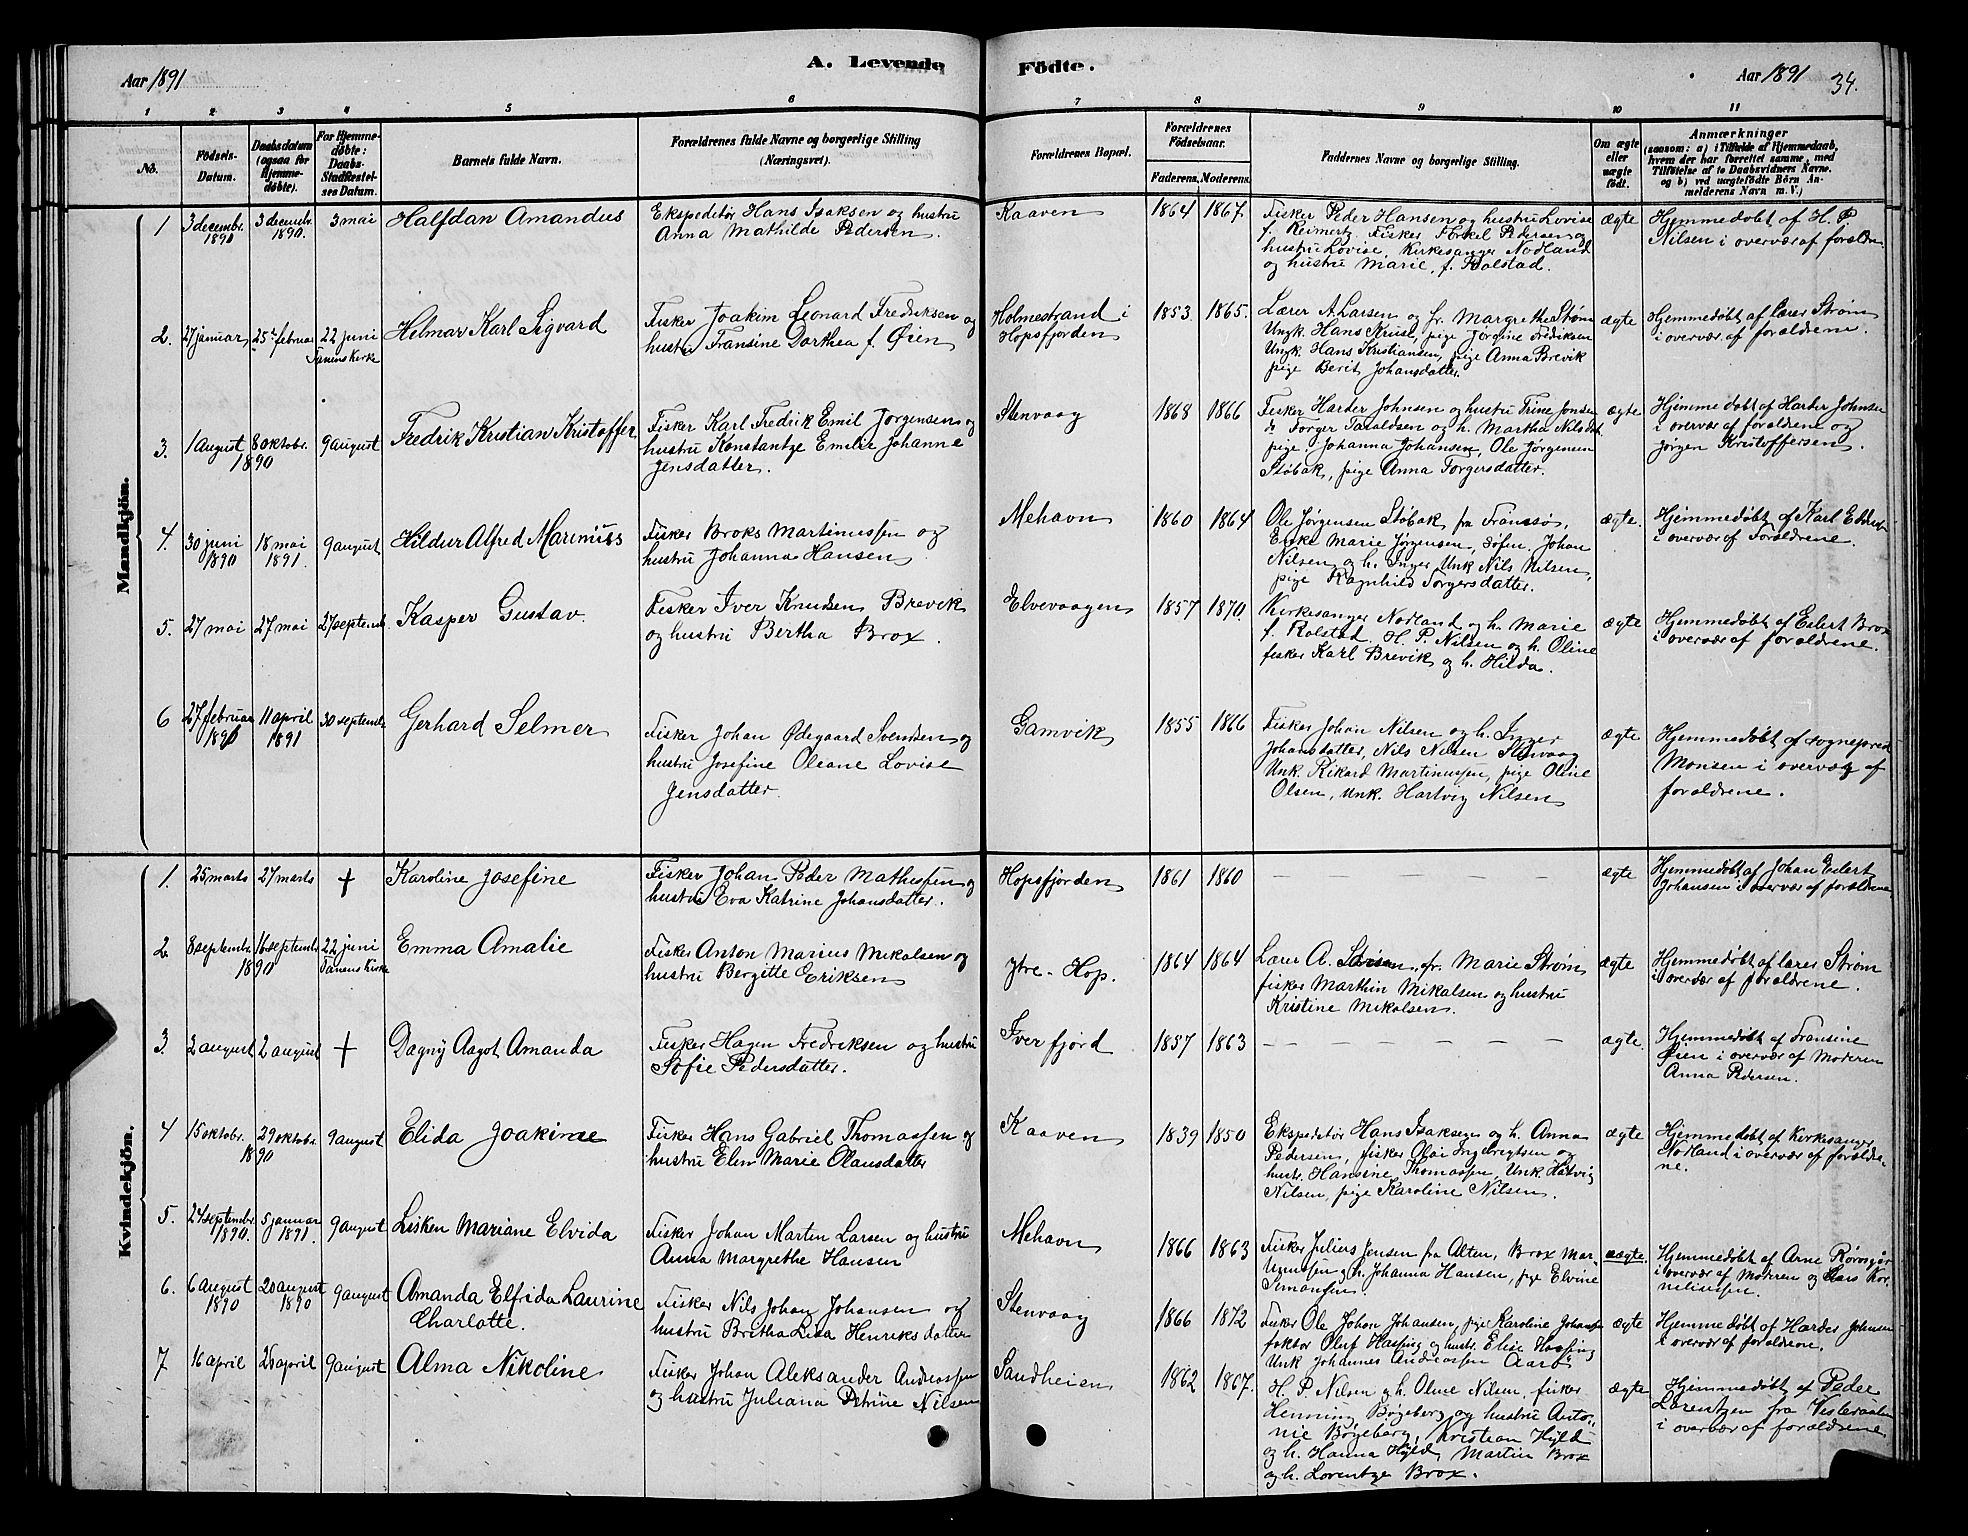 Aar 1891
A. Levende Födte.
Aar 1891
34.
1 2 3 4 5 6 7 8 9 10 11
No.
Födsels-
Datum.
Daabsdatum
(ogsaa for
Hjemme-
døbte).
For Hjemme-
døbte:
Daabs-
Stadfæstel-
ses Datum.
Barnets fulde Navn.
Forældrenes fulde Navne og borgerlige Stilling
(Næringsvei).
Forældrenes Bopæl.
Forældrenes
Födselsaar.
Faderens. Moderens.
Faddernes Navne og borgerlige Stilling.
Om ægte
eller
uægte
födt.
Anmærkninger
(saasom: a) i Tilfælde af Hjemmedaab,
hvem der har forrettet samme, med
Tilføielse af to Daabsvidners Navne.
og b) ved uægtefödte Börn An-
melderens Navn m. V.)
Mandkjön.
1 3 decembr. 1890 3 decembr. 1890. 3 mai Halfdan Amandus
Ekspeditør Hans Isaksen og hustru
Anna Mathilde Pedersen.
Kaaven 1864 1867.
Fisker Peder Hansen og hustru Lovise
f. Reimertz, Fisker Torkel Pedersen og
hustru Lovise, Kirkesanger Nodland
og hustru Marie, f. Rolstad.
ægte
Hjemmedøbt af H. P.
Nilsen i overvær af foræld
2. 27 januar 25 februar 22 juni Tanens Kirke Hilmar Karl Sigvard
Fisker Joakim Leonard Fredriksen og
hustru Fransine Dorthea f. Øien
Holmestrand i
Hopsfjorden
1853. 1865.
Lærer A. Larsen og fr. Margrethe Strøm
Ungk. Hans Kruse, pige Jørgine Fredriksen
Ungk. Hans Kristiansen, pige Anna Brevik
pige Berit Johansdatter.
ægte
Hjemmedøbt af lærer Strøm
i overvær af forældrene.
3. 1 August 1890 8 oktobr. 9 august Fredrik Kristian Kristoffer
Fisker Karl Fredrik Emil Jørgensen og
hustru Konstantze Emilie Johanne
Jensdatter.
Stenvaag 1868 1866
Fisker Harder Johnsen og hustru Trine Jonsen
Torger Taraldsen og h. Martha Nilsdt.
pige Johanna Johansen, Ole Jørgensen
Støbak, pige Anna Torgersdatter.
ægte
Hjemmedøbt af Harder Johnsen
i overvær af forældrene og
Jørgen Kristoffersen.
4. 30 juni 1890 18 mai 1891. 9 august Hildur Alfred Marinius
Fisker Broks Martinussen og
hustru Johanna Hansen
Mehavn 1860 1864
Ole Jørgensen Støbak fra
Enke Marie Jørgensen, Johan
Nilsen og h. Inger, Unk Nils Nilsen,
pige Ragnhild Torgersdatter.
ægte.
Hjemmedøbt af Karl
i overvær af Forældrene.
5. 27 mai 27 mai 27 septemb. Kasper Gustav.
Fisker Iver Knudsen Brevik
og hustru Bertha Brox.
Elvevaagen 1857 1870.
Kirkesanger Nodland og h. Marie
f. Rolstad, H. P. Nilsen og h. Oline
fisker Karl Brevik og h. Hilda.
ægte
Hjemmedøbt af Eilert Brox
i overvær af forældrene.
6 27 februar 1891 11 april 1891 30 septembr Gerhard Selmer
Fisker Johan Ødegaard Svendsen og
hustru Josefine Oleane Lovise
Jensdatter
Gamvik 1855 1866
Fisker Johan Nilsen og h. Inger
Johansdatter, Nils Nilsen Stenvaag
Unk. Rikard Martinussen, pige Oline
Olsen, Unk. Hartvig Nilsen
ægte
Hjemmedøbt af sognepræst
Monsen i overvær af
forældrene.
Kvindekjön.
1. 25 marts 27 marts + Karoline Josefine
Fisker Johan Peder Mathissen og
hustru Eva Katrine Johansdatter.
Hopsfjorden 1861 1860
— — — — — —
ægte
Hjemmedøbt af Johan Eilert
Johansen i overvær af forældrene
2. 8 septembr. 1890 16 septembr. 22 juni Tanens Kirke Emma Amalie
Fisker Anton Marius Mikalsen og
hustru Bergitte Eriksen
Ytre-Hop. 1864 1864
Lærer A. Larsen, fr. Marie Strøm
fisker Marthin Mikalsen og hustru
Kristine Mikalsen.
ægte
Hjemmedøbt af lærer Strøm
i overvær af forældrene.
3. 2 august 2 august + Dagny Aagot Amanda
Fisker Hagen Fredriksen og hustru
Sofie Pedersdatter.
Iverfjord 1857 1863
— — — — — —
ægte.
Hjemmedøbt af Fransine
Øien i overvær af Moderen
Anna Pedersen.
4 15 oktobr. 1890 29 oktobr. 9 august Elida Joakime
Fisker Hans Gabriel Thomassen og
hustru Elen Marie Olausdatter
Kaaven 1839 1850
Ekspeditør Hans Isaksen og h. Anna
Pedersen, fisker Olai Ingebrigtsen og
hustr. Hansine Thomassen, Unk Hartvig
Nilsen, pige Karoline Nilsen.
ægte
Hjemmedøbt af Kirkesanger
Nodland i overvær af foræld-
ne.
5. 24 septembr 1890. 5 januar 1891. 9 august Lisken Mariane Elvida
Fisker Johan Martin Larsen og hustru
Anna Margrethe Hansen
Mehavn 1866 1863
Fisker Julius Jensen fra Alten, Brox Mar-
tinussen og h. Johanna Hansen, pige Elvine
Simonsen
uægte.
Hjemmedøbt af Arne
i overvær af Moderen og Lars Kor-
neliussen.
6. 6 august 1890 20 august 1890 9 august Amanda Elfrida Laurine
Charlotte.
Fisker Nils Johan Johansen og
hustru Britha Lisa Henriksdatter
Stenvaag 1866 1872
Fisker Ole Johan Johansen, pige Karoline Johansen
faktor Olaf Hasfing og hustr. Elise Hasfing
Unk Johannes Andreassen Aarø
ægte
Hjemmedøbt af Harder Johnsen
i overvær af forældrene.
7 16 april 26 april 9 august Alma Nikoline
Fisker Johan Aleksander Andreassen
og hustru Juliana Petrine Nilsen
Sandheien 1862 1867.
H. P Nilsen og h. Oline Nilsen, fisker
Henning Bøgeberg og hustru Anto-
nie Bøgeberg, Kristian Hyld
og h. Hanna Hyld, Martin Brox
og h. Lorentze Brox.
ægte
Hjemmedøbt af Peder
Lorentzen fra Vesteraalen
i overvær af forældrene